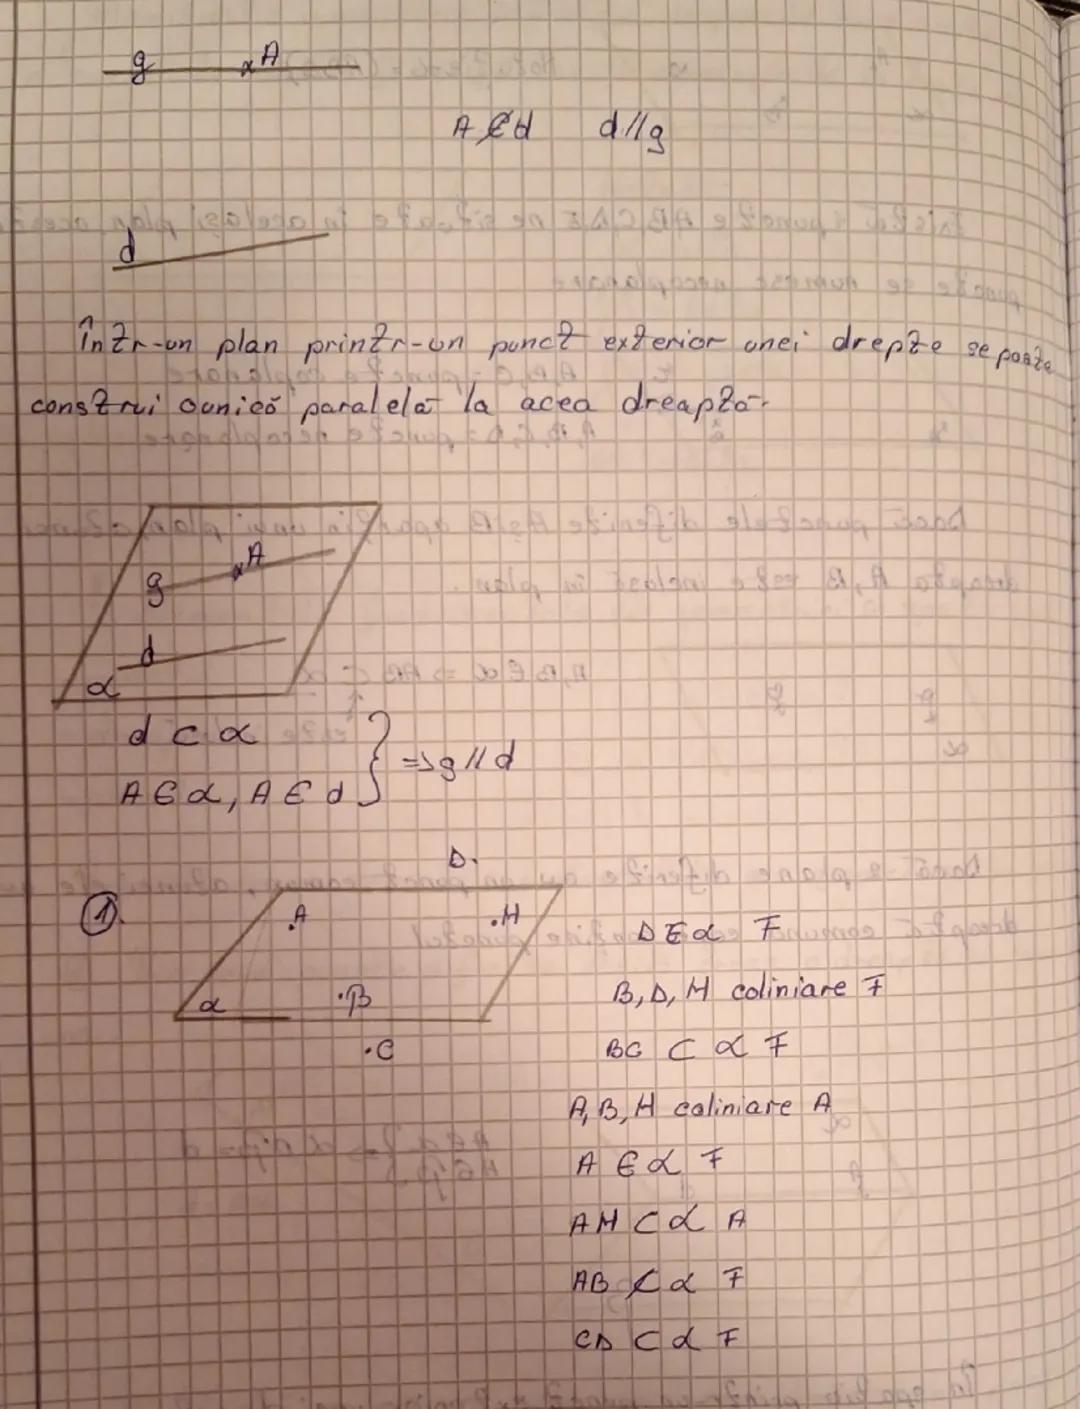 g A
A ∉ d d//g
d
Într-un plan printr-un punct exterior unei drepte se poate
construi o unică paralelă la acea dreaptă.
A
g
d
α
d ⊂ α
A ∈ α, A ∈ d } => g // d
D
① A M D ∈ α F
B, D, M coliniare F
α B
C BC ⊂ α F
A, B, M coliniare A
A ∈ α F
AM ⊂ α A
AB ⊄ α F
CD ⊂ α F